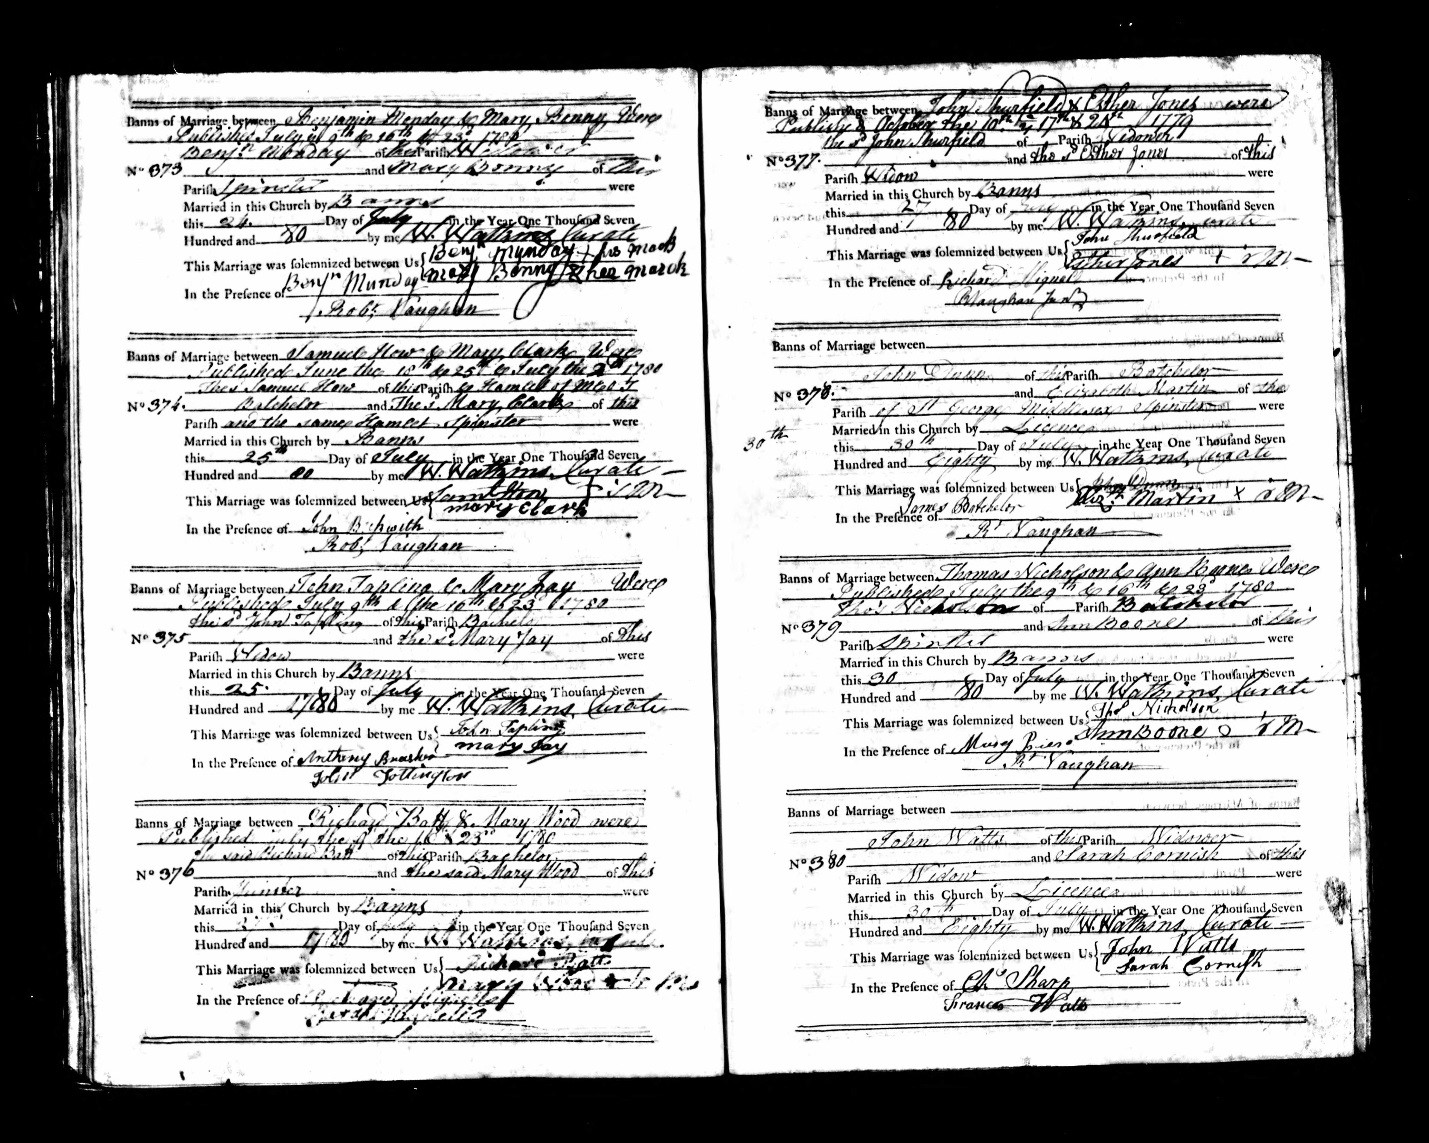 Banns of Marriage between Benjamin Monday & Mary Benny Were
Published July ye 9th & 16th & 23d 1780
Benjn Monday of this Parish
No 373 and Mary Benny of this
Parish Spinster were
Married in this Church by Banns
this 24 Day of July in the Year One Thousand Seven
Hundred and 80 by me W. Watkins Curate
This Marriage was solemnized between Us Benjn Munday + his mark
mary Benny her marck
In the Presence of Benjn Munday
Robt Vaughan
Banns of Marriage between Samuel How & Mary Clark Were
Published June the 18th & 25th & July the 2d 1780
The sd Samuel How of this Parish & Hamlet of
No 374. Batchelor and The sd Mary Clark of this
Parish and the same Hamlet Spinster were
Married in this Church by Banns
this 25th Day of July in the Year One Thousand Seven
Hundred and 80 by me W. Watkins Curate
This Marriage was solemnized between Us Saml How
mary Clark
In the Presence of John
Robt Vaughan
Banns of Marriage between John Tapling & Mary Jay Were
Published July 9th & the 16th & 23 1780
the sd John Tapling of this Parish Bachelr
No 375 and the sd Mary Jay of this
Parish Widow were
Married in this Church by Banns
this 25 Day of July in the Year One Thousand Seven
Hundred and 1780 by me W. Watkins Curate
This Marriage was solemnized between Us John Tapling
mary Jay
In the Presence of Anthony
John Tottington
Banns of Marriage between Richard Batt & Mary Wood were
Published July the 9 the 16 & 23rd 1780
the said Richard Batt of this Parish Bachelor
No 376 and the said Mary Wood of this
Parish Spinster were
Married in this Church by Banns
this Day of July in the Year One Thousand Seven
Hundred and 1780 by me W. Watkins Curate
This Marriage was solemnized between Us Richard Batt
Mary Wood
In the Presence of Richard
Banns of Marriage between John Shurfield & Esther Jones were
Publish'd October the 10th 17th & 24st 1779
the sd John Shurfield of Parish
No 377. and the sd Esther Jones of this
Parish Widow were
Married in this Church by Banns
this 27 Day of July in the Year One Thousand Seven
Hundred and 80 by me W. Watkins curate
This Marriage was solemnized between Us John Shurfield
Esther Jones
In the Presence of Richard
Vaughan Junr
Banns of Marriage between
John Dunn of this Parish Batchelor
No 378. and Elizabeth Martin of the
Parish of St George Middlesex Spinster were
Married in this Church by Licence
30th
this 30th Day of July in the Year One Thousand Seven
Hundred and Eighty by me W. Watkins, Curate
This Marriage was solemnized between Us John Dunn
Elizth Martin X
In the Presence of James Batchelor
Rt Vaughan
Banns of Marriage between Thomas Nicholson & Ann Boone Were
Published July the 9th & 16th & 23d 1780
Thos Nicholson of Parish Batchelor
No 379 and Ann Boone of this
Parish Spinster were
Married in this Church by Banns
this 30 Day of July in the Year One Thousand Seven
Hundred and 80 by me W. Watkins, Curate
This Marriage was solemnized between Us Thos Nicholson
Ann Boone
In the Presence of Mary
Rt Vaughan
Banns of Marriage between
John Watts of this Parish Widower
No 380 and Sarah Cornish of this
Parish Widow were
Married in this Church by Licence
this 30th Day of July in the Year One Thousand Seven
Hundred and Eighty by me W. Watkins, Curate
This Marriage was solemnized between Us John Watts
Sarah Cornish
In the Presence of Chs Sharp
Frances Watts